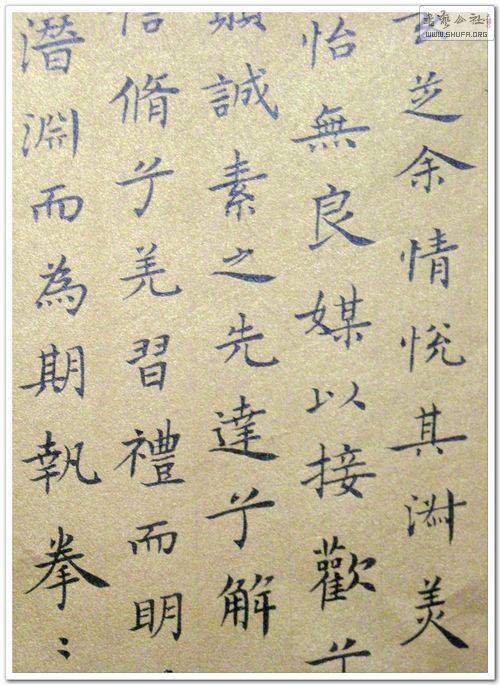 芝余情悅其淑美
怡無良媒以接歡兮
願誠素之先達兮解
信脩兮羌習禮而明
潛淵而為期執拳:
书艺公社
WWW.SHUFA.ORG